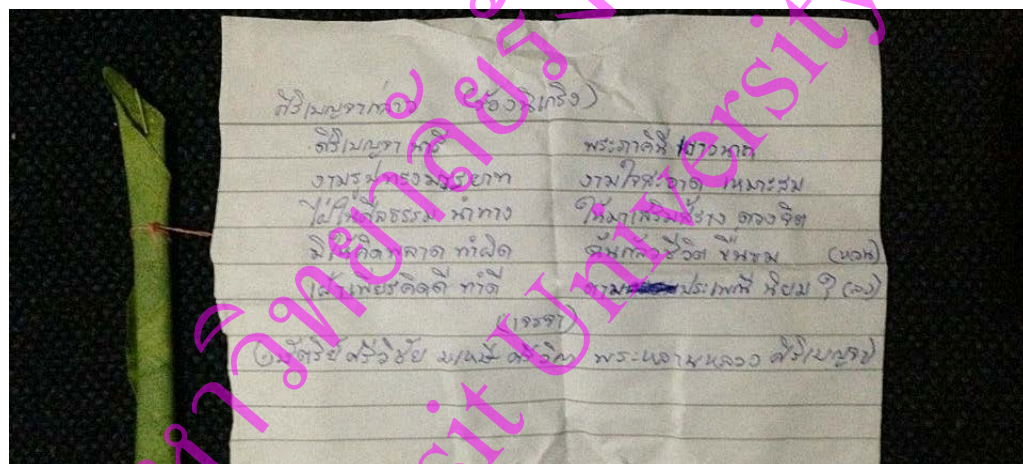 ศิริเบญจากล่าว (ร้องลิเกริ่ง)
ศิริเบญจา นารี พระภาคินี เยาวนาถ
งามรูปทรงมรรยาท งามใจสะอาด เหมาะสม
ใฝ่ในศีลธรรม นำทาง ให้มาเสริมสร้าง ดวงจิต
มิให้คิดพลาด ทำผิด ชีวิต ชื่นชม (หวน)
เฝ้าเพียรคิดดี ทำดี ตาม ประเพณี นิยม ๆ (ลง)
(เจรจา)
ศรีวิชัย มเหสี พระหลานหลวง ศิริเบญจา
มหาวิทยาลัย
University